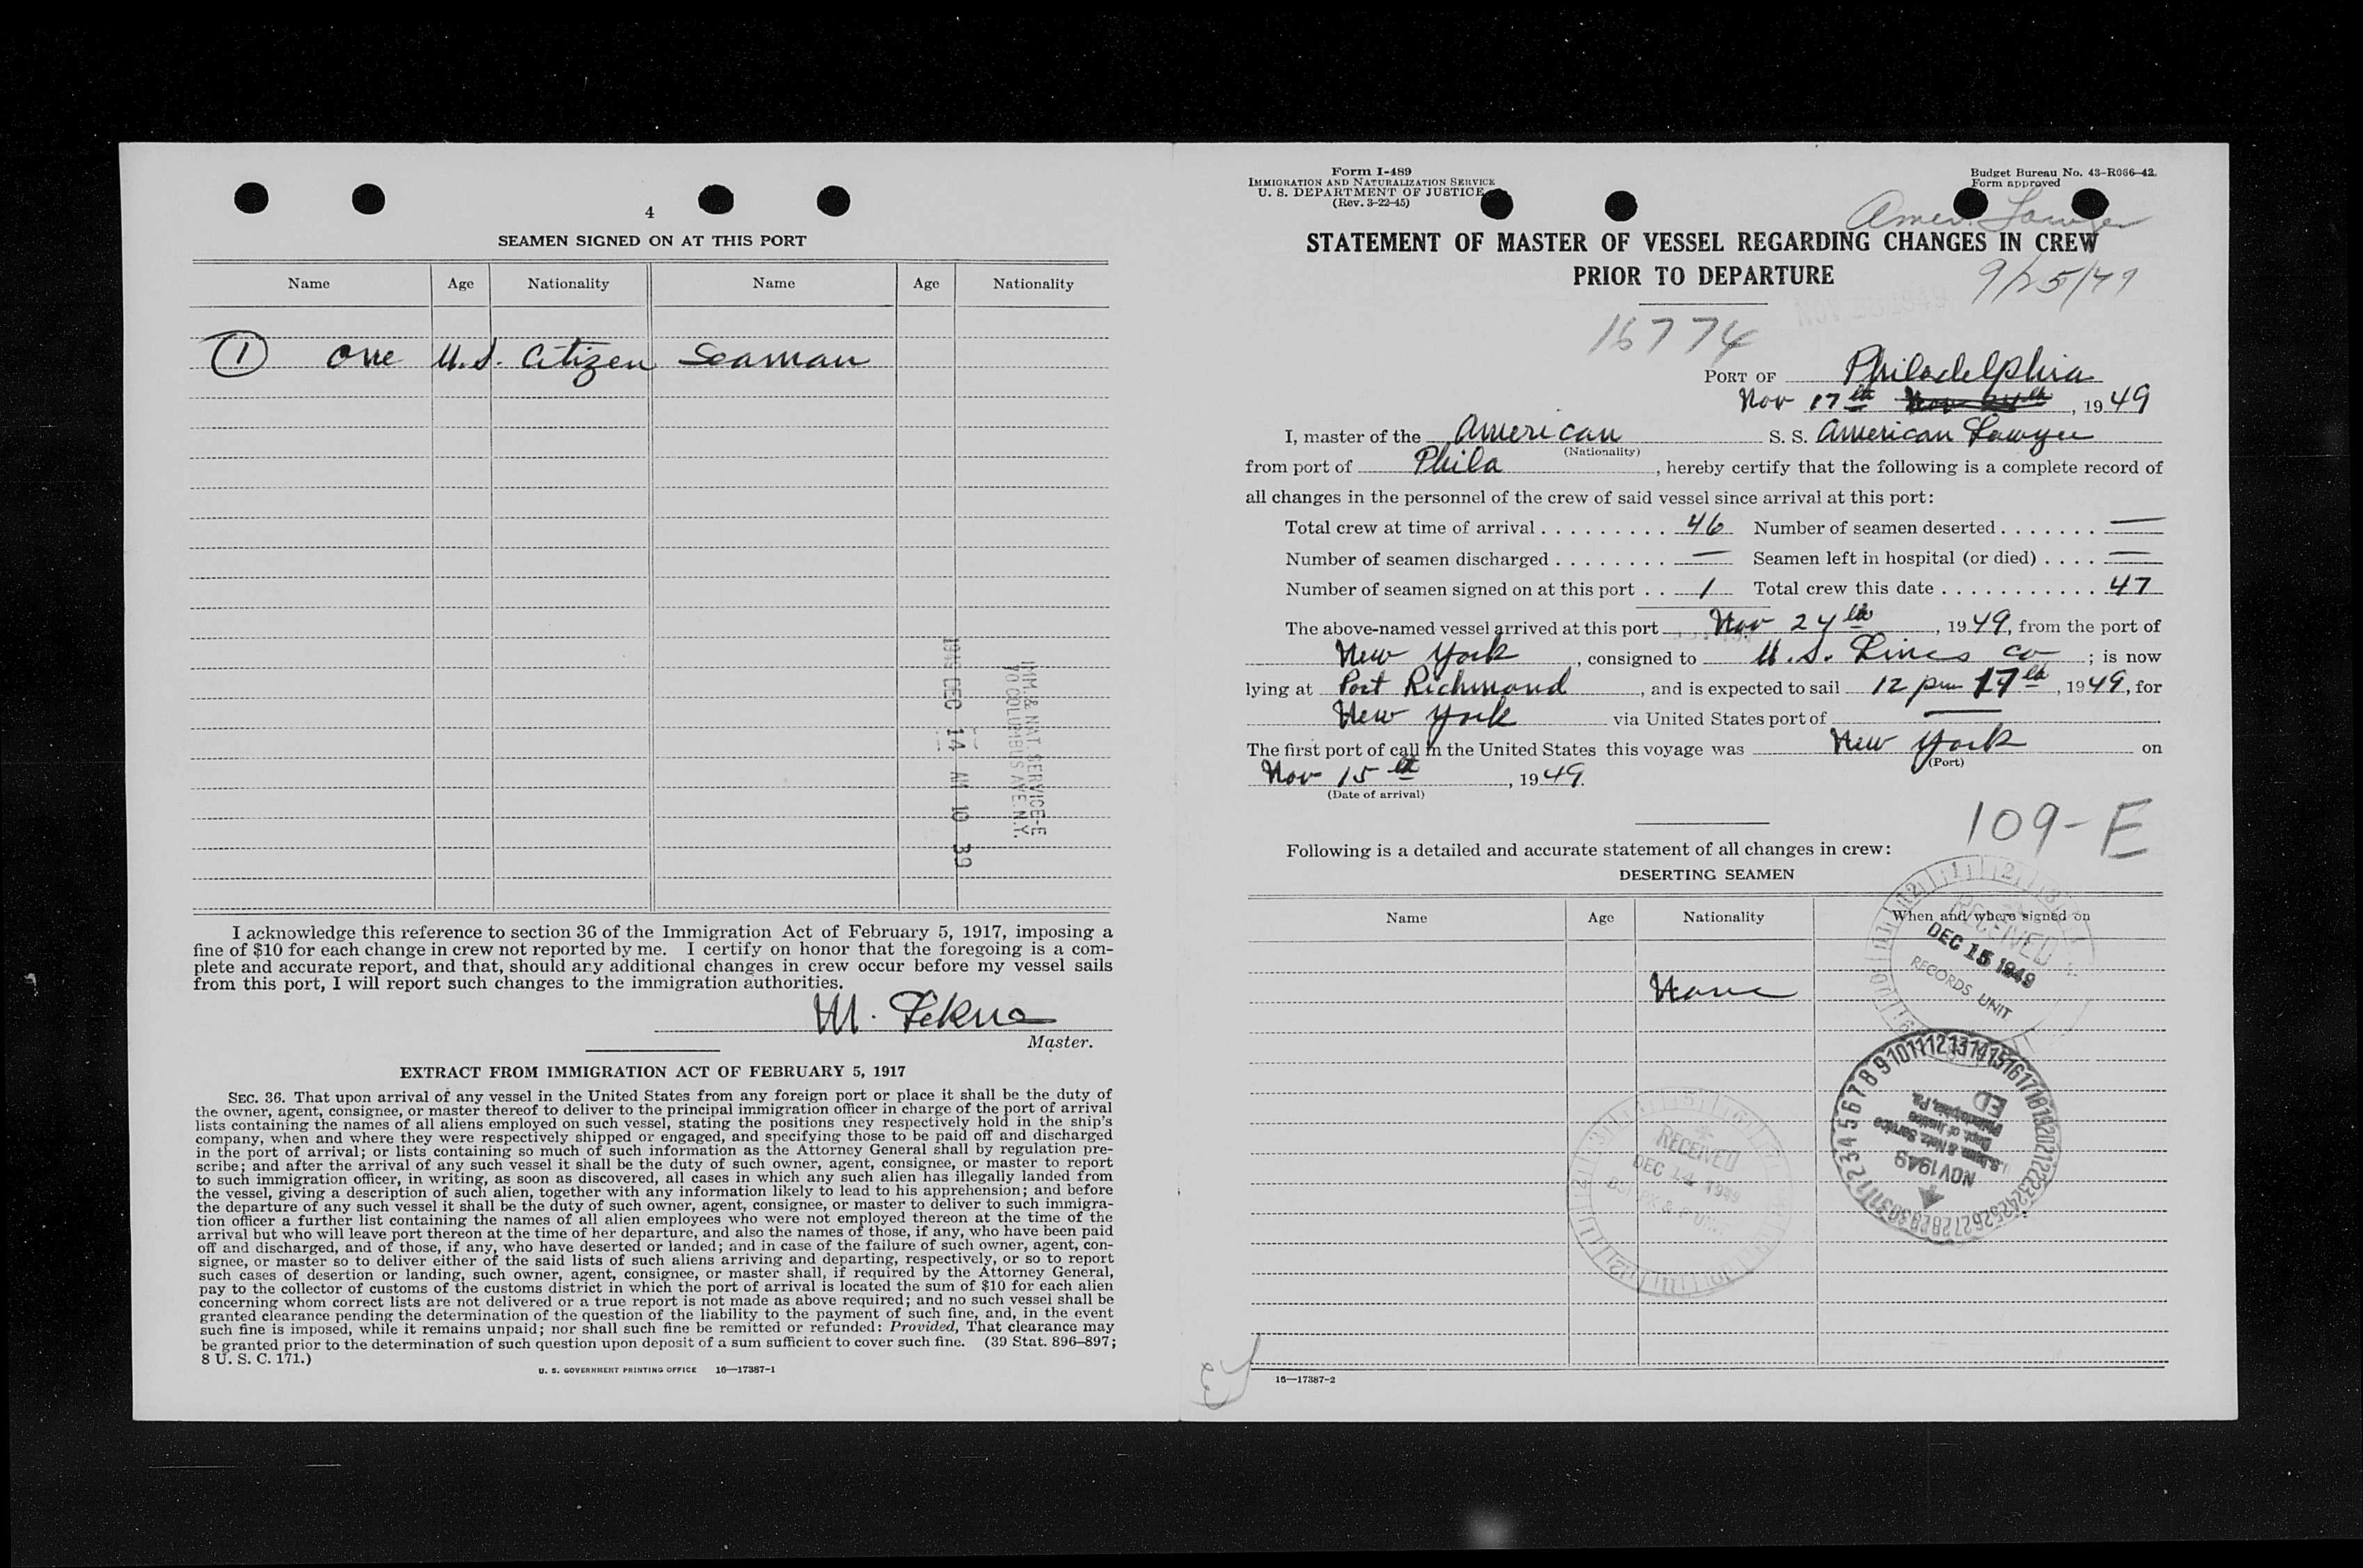 4
SEAMEN SIGNED ON AT THIS PORT
Name Age Nationality Name Age Nationality
1 One U.S. Citizen Seaman
1949 DEC 14 AM 10 39
IMM. & NAT. SERVICE-E
70 COLUMBUS AVE. N.Y.
I acknowledge this reference to section 36 of the Immigration Act of February 5, 1917, imposing a
fine of $10 for each change in crew not reported by me. I certify on honor that the foregoing is a com-
plete and accurate report, and that, should any additional changes in crew occur before my vessel sails
from this port, I will report such changes to the immigration authorities.
M.
Master.
EXTRACT FROM IMMIGRATION ACT OF FEBRUARY 5, 1917
SEC. 36. That upon arrival of any vessel in the United States from any foreign port or place it shall be the duty of
the owner, agent, consignee, or master thereof to deliver to the principal immigration officer in charge of the port of arrival
lists containing the names of all aliens employed on such vessel, stating the positions they respectively hold in the ship's
company, when and where they were respectively shipped or engaged, and specifying those to be paid off and discharged
in the port of arrival; or lists containing so much of such information as the Attorney General shall by regulation pre-
scribe; and after the arrival of any such vessel it shall be the duty of such owner, agent, consignee, or master to report
to such immigration officer, in writing, as soon as discovered, all cases in which any such alien has illegally landed from
the vessel, giving a description of such alien, together with any information likely to lead to his apprehension; and before
the departure of any such vessel it shall be the duty of such owner, agent, consignee, or master to deliver to such immigra-
tion officer a further list containing the names of all alien employees who were not employed thereon at the time of the
arrival but who will leave port thereon at the time of her departure, and also the names of those, if any, who have been paid
off and discharged, and of those, if any, who have deserted or landed; and in case of the failure of such owner, agent, con-
signee, or master so to deliver either of the said lists of such aliens arriving and departing, respectively, or so to report
such cases of desertion or landing, such owner, agent, consignee, or master shall, if required by the Attorney General,
pay to the collector of customs of the customs district in which the port of arrival is located the sum of $10 for each alien
concerning whom correct lists are not delivered or a true report is not made as above required; and no such vessel shall be
granted clearance pending the determination of the question of the liability to the payment of such fine, and, in the event
such fine is imposed, while it remains unpaid; nor shall such fine be remitted or refunded: Provided, That clearance may
be granted prior to the determination of such question upon deposit of a sum sufficient to cover such fine. (39 Stat. 896–897;
8 U. S. C. 171.)
U. S. GOVERNMENT PRINTING OFFICE 16—17387-1
Form I-489
IMMIGRATION AND NATURALIZATION SERVICE
U. S. DEPARTMENT OF JUSTICE
(Rev. 3-22-45)
Budget Bureau No. 43-R066-42.
Form approved
Amer. Lawyer
STATEMENT OF MASTER OF VESSEL REGARDING CHANGES IN CREW
PRIOR TO DEPARTURE
16774
PORT OF Philadelphia
Nov 17th , 1949
I, master of the American S. S. American Lawyer
(Nationality)
from port of Phila , hereby certify that the following is a complete record of
all changes in the personnel of the crew of said vessel since arrival at this port:
Total crew at time of arrival . . . . . . . . . . 46 Number of seamen deserted . . . . . . . —
Number of seamen discharged . . . . . . . . — Seamen left in hospital (or died) . . . . —
Number of seamen signed on at this port . . 1 Total crew this date . . . . . . . . . . . . 47
The above-named vessel arrived at this port Nov 24th , 1949, from the port of
New York , consigned to U.S. Lines Co ; is now
lying at Port Richmond , and is expected to sail 12 pm 17th , 1949, for
New York via United States port of —
The first port of call in the United States this voyage was New York on
(Port)
Nov 15th , 1949.
(Date of arrival)
109-E
Following is a detailed and accurate statement of all changes in crew:
DESERTING SEAMEN
Name Age Nationality When and where signed on
RECEIVED
DEC 15 1949
RECORDS UNIT
None
RECEIVED
DEC 14 1949
NOV 1949
U.S. Imm. & Natz. Service
Dept. of Justice
Philadelphia, Pa.
ED
16—17387-2